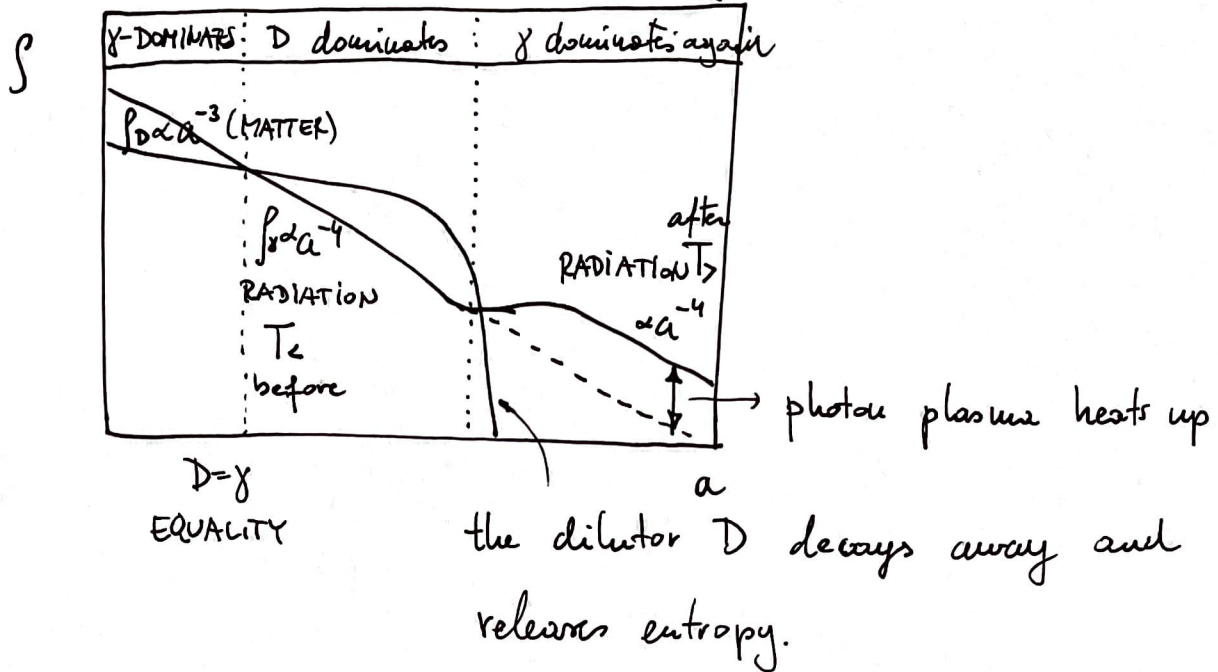 ρ
γ-DOMINATES D dominates γ dominates again
ρ_D ∝ a⁻³ (MATTER)
ρ_γ ∝ a⁻⁴
RADIATION
T<
before
after
RADIATION T>
∝ a⁻⁴
→ photon plasma heats up
D=γ
EQUALITY
a
the dilutor D decays away and
releases entropy.